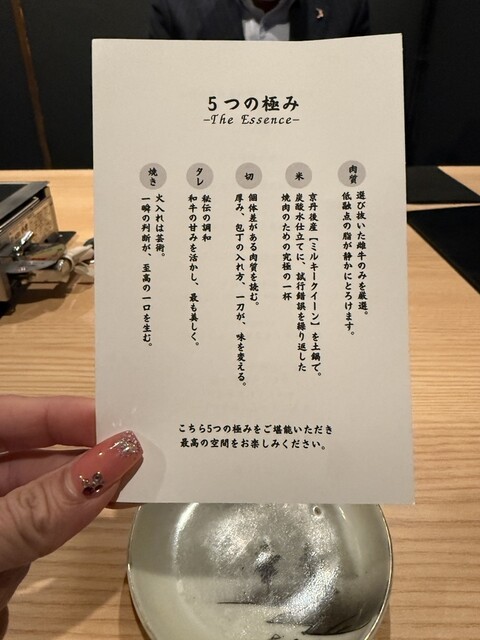 5つの極み
-The Essence-
肉質
選び抜いた雌牛のみを厳選。
低融点の脂が静かにとろけます。
米
京丹後産【ミルキークイーン】を土鍋で。
炭酸水仕立てに、試行錯誤を繰り返した
焼肉のための究極の一杯
切
個体差がある肉質を読む。
厚み、包丁の入れ方、一刀が、味を変える。
タレ
秘伝の調和
和牛の甘みを活かし、最も美しく。
焼き
火入れは芸術。
一瞬の判断が、至高の一口を生む。
こちら5つの極みをご堪能いただき
最高の空間をお楽しみください。